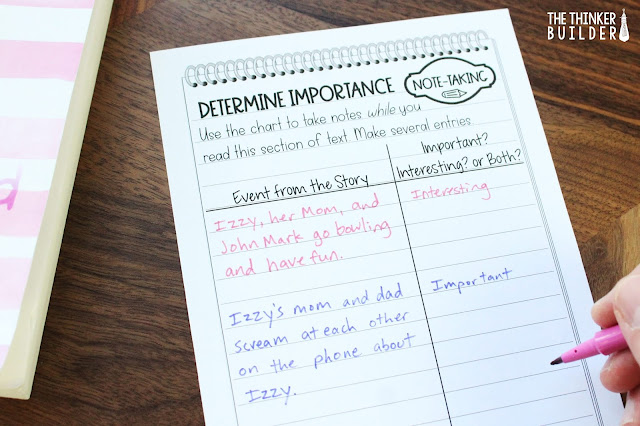 THE THINKER
BUILDER
DETERMINE IMPORTANCE
NOTE-TAKING
Use the chart to take notes while you
read this section of text. Make several entries.
Event from the Story
Important?
Interesting? or Both?
Izzy, her Mom, and
John Mark go bowling
and have fun.
Interesting
Izzy's mom and dad
scream at each other
on the phone about
Izzy.
Important